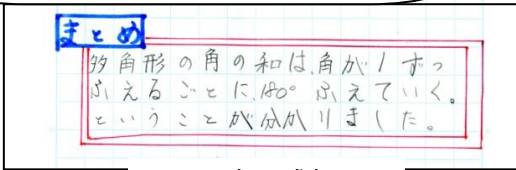 まとめ
多角形の角の和は、角が1ずつ
ふえるごとに、180°ふえていく。
ということが分かりました。